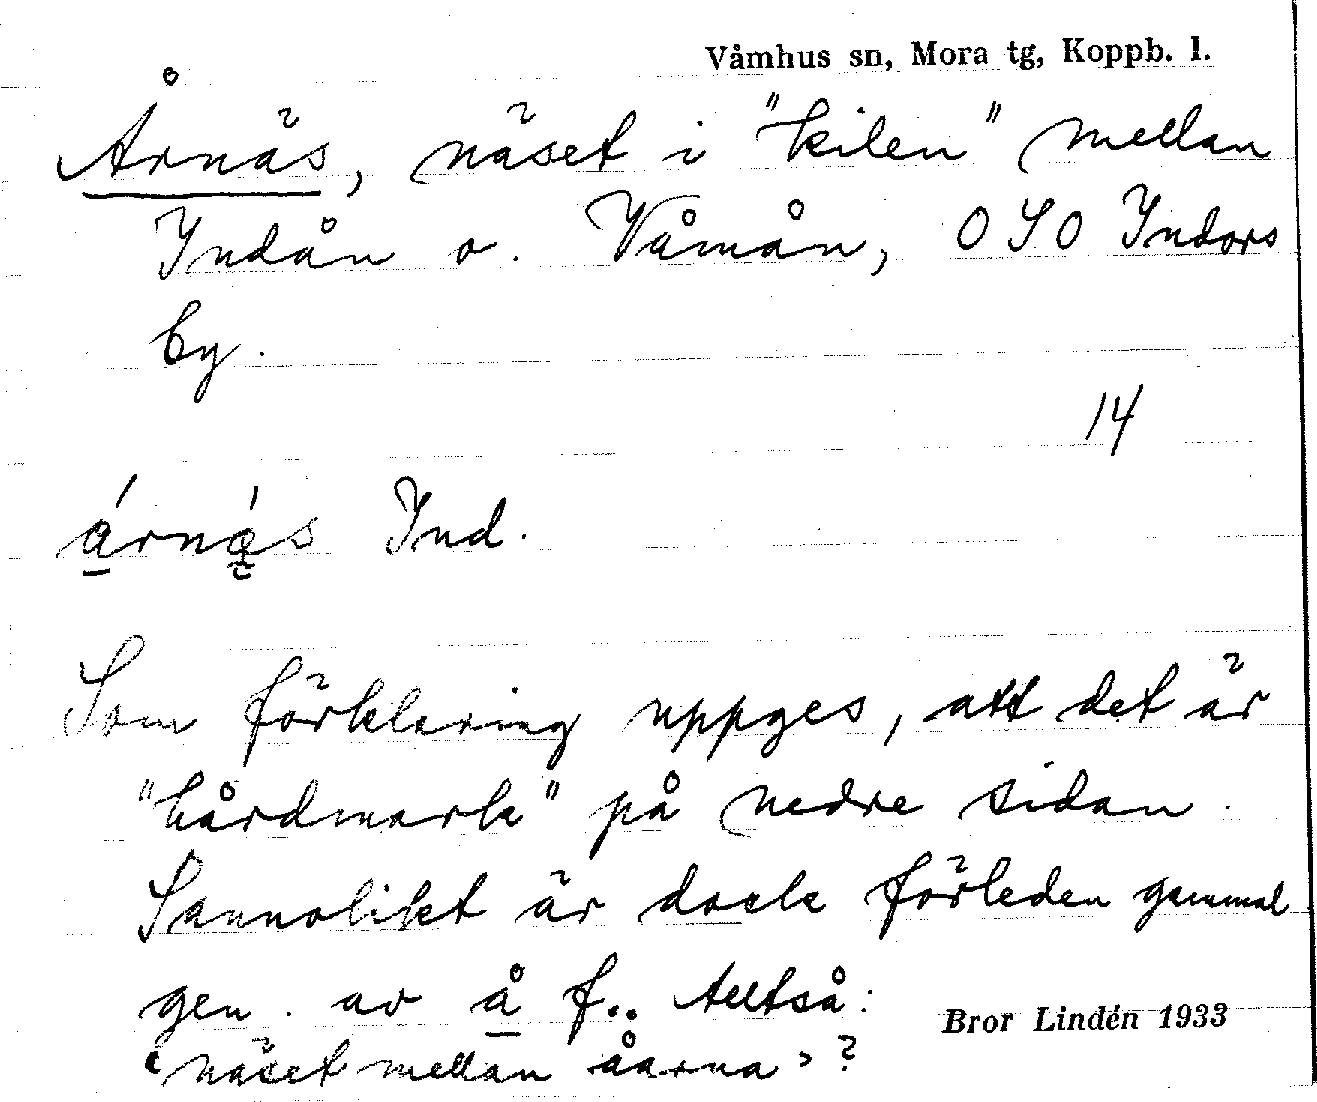 Våmhus sn, Mora tg, Koppb. l.
Årnäs, näset i "kilen" mellan
Indån o. Våmån, OSO Indors
by.
14
Ind.
Som förklaring uppges, att det är
"hårdmark" på nedre sidan.
Sannolikt är dock förleden gammal
gen. av å f.. Alltså:
Bror Lindén 1933
'näset mellan åarna'?